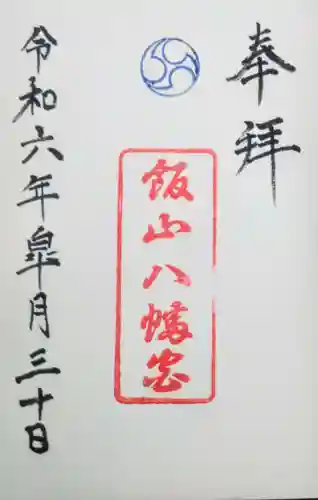 奉拝
飯山八幡宮
令和六年皐月三十日